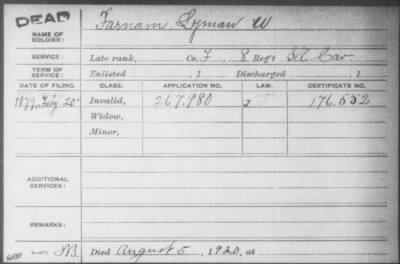 DEAD
NAME OF SOLDIER: Farnam, Lyman W
SERVICE: Late rank, Co. F, 8 Reg't Ill Cav.
TERM OF SERVICE: Enlisted , 1 Discharged , 1
DATE OF FILING. CLASS. APPLICATION NO. LAW. CERTIFICATE NO.
1879, Feby 20 Invalid, 267.980 J 176.552
Widow,
Minor,
ADDITIONAL SERVICES:
REMARKS:
Died August 5, 1920, at